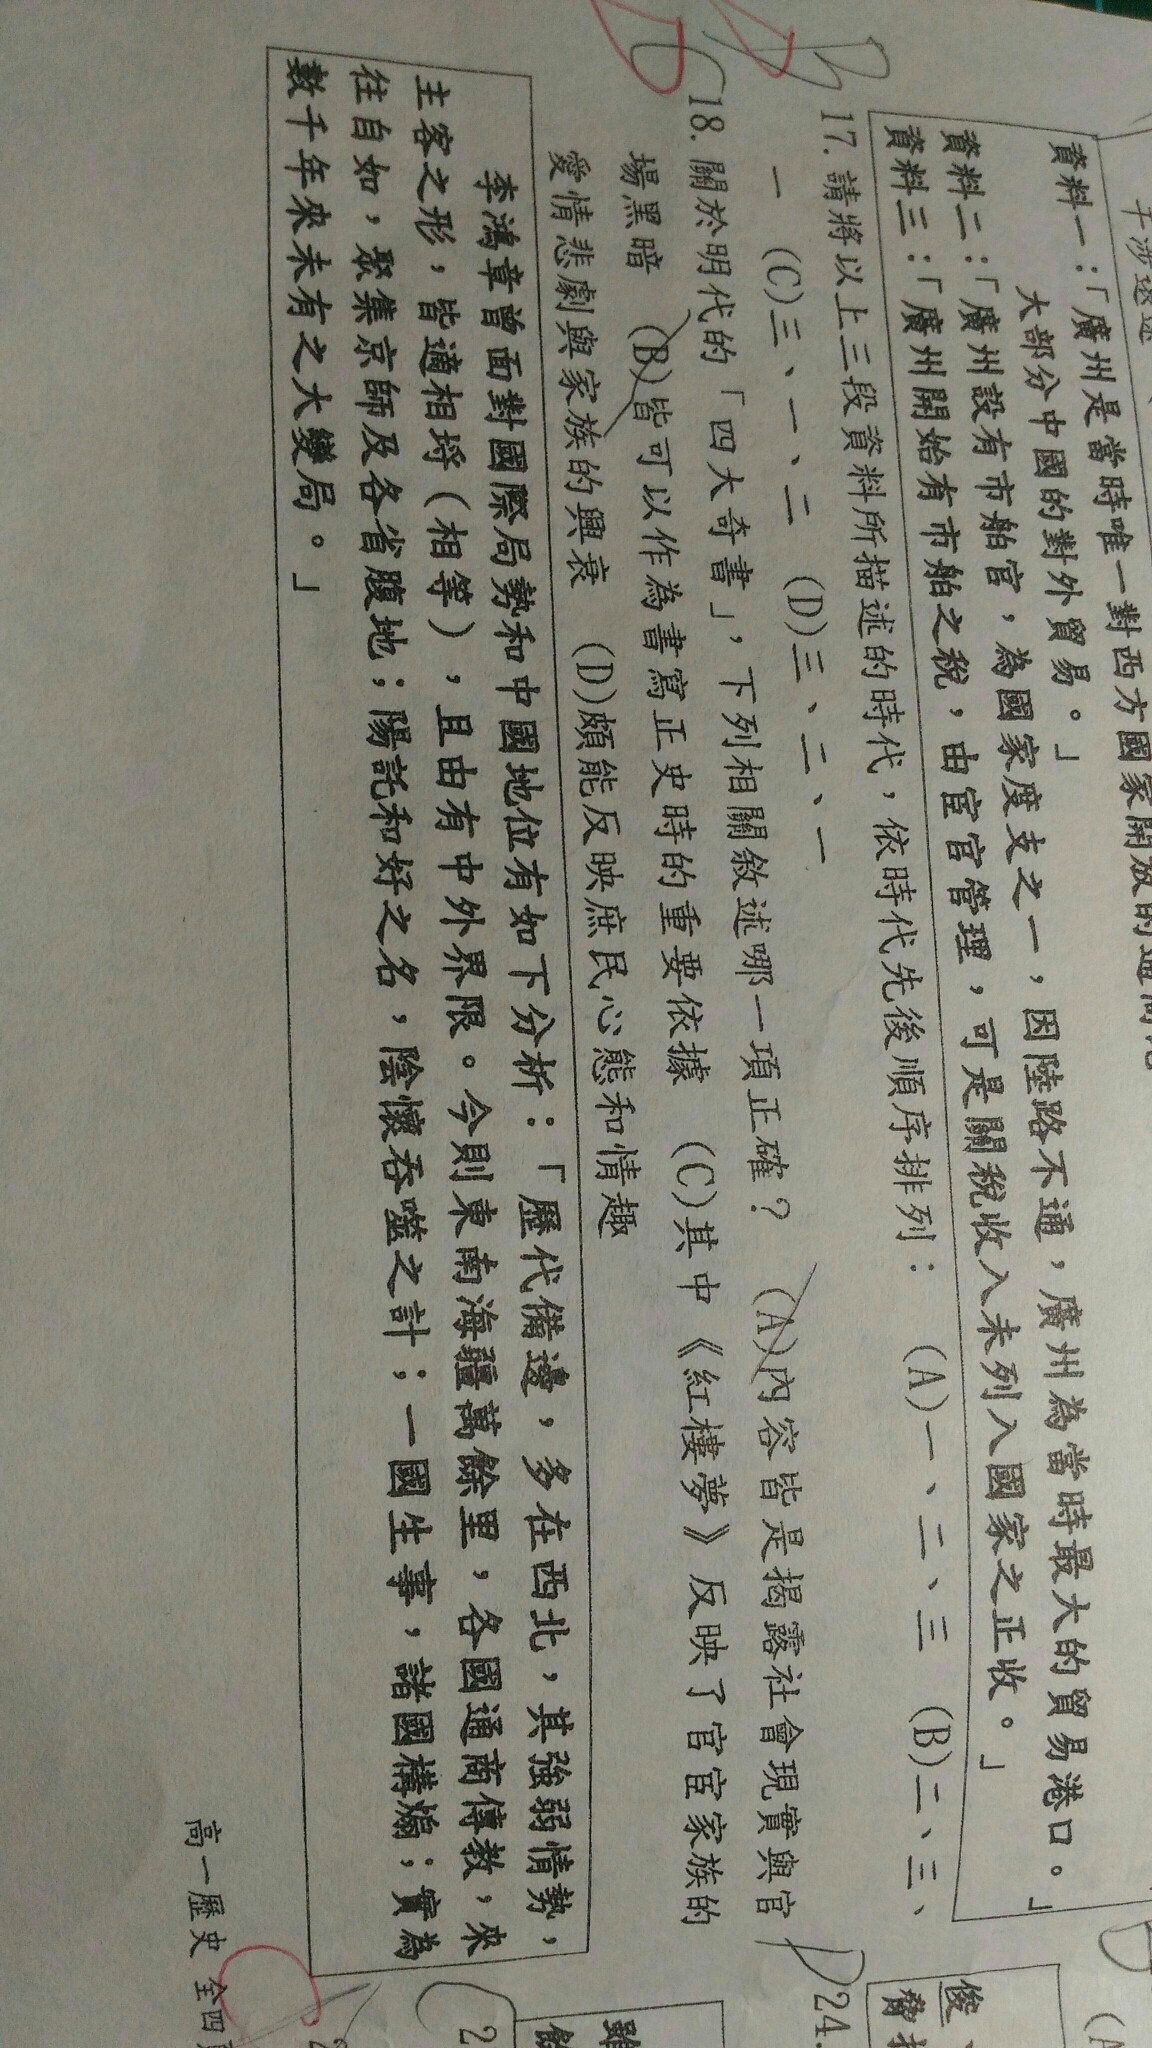 干涉
資料一：「廣州是當時唯一對西方國家開放的通商
大部分中國的對外貿易。」
資料二：「廣州設有市舶官，為國家度支之一，因陸路不通，廣州為當時最大的貿易港口。」
資料三：「廣州開始有市舶之稅，由宦官管理，可是關稅收入未列入國家之正收。」
17.請將以上三段資料所描述的時代，依時代先後順序排列： (A)一、二、三 (B)二、三、
一 (C)三、一、二 (D)三、二、一
18.關於明代的「四大奇書」，下列相關敘述哪一項正確？ (A)內容皆是揭露社會現實與官
場黑暗 (B)皆可以作為書寫正史時的重要依據 (C)其中《紅樓夢》反映了官宦家族的
愛情悲劇與家族的興衰 (D)頗能反映庶民心態和情趣
李鴻章曾面對國際局勢和中國地位有如下分析：「歷代備邊，多在西北，其強弱情勢，
主客之形，皆適相埒（相等），且由有中外界限。今則東南海疆萬餘里，各國通商傳教，來
往自如，聚集京師及各省腹地；陽託和好之名，陰懷吞噬之計；一國生事，諸國構煽；實為
數千年來未有之大變局。」
高一歷史 全四
D
24.
C
2
俊
雖
B
D